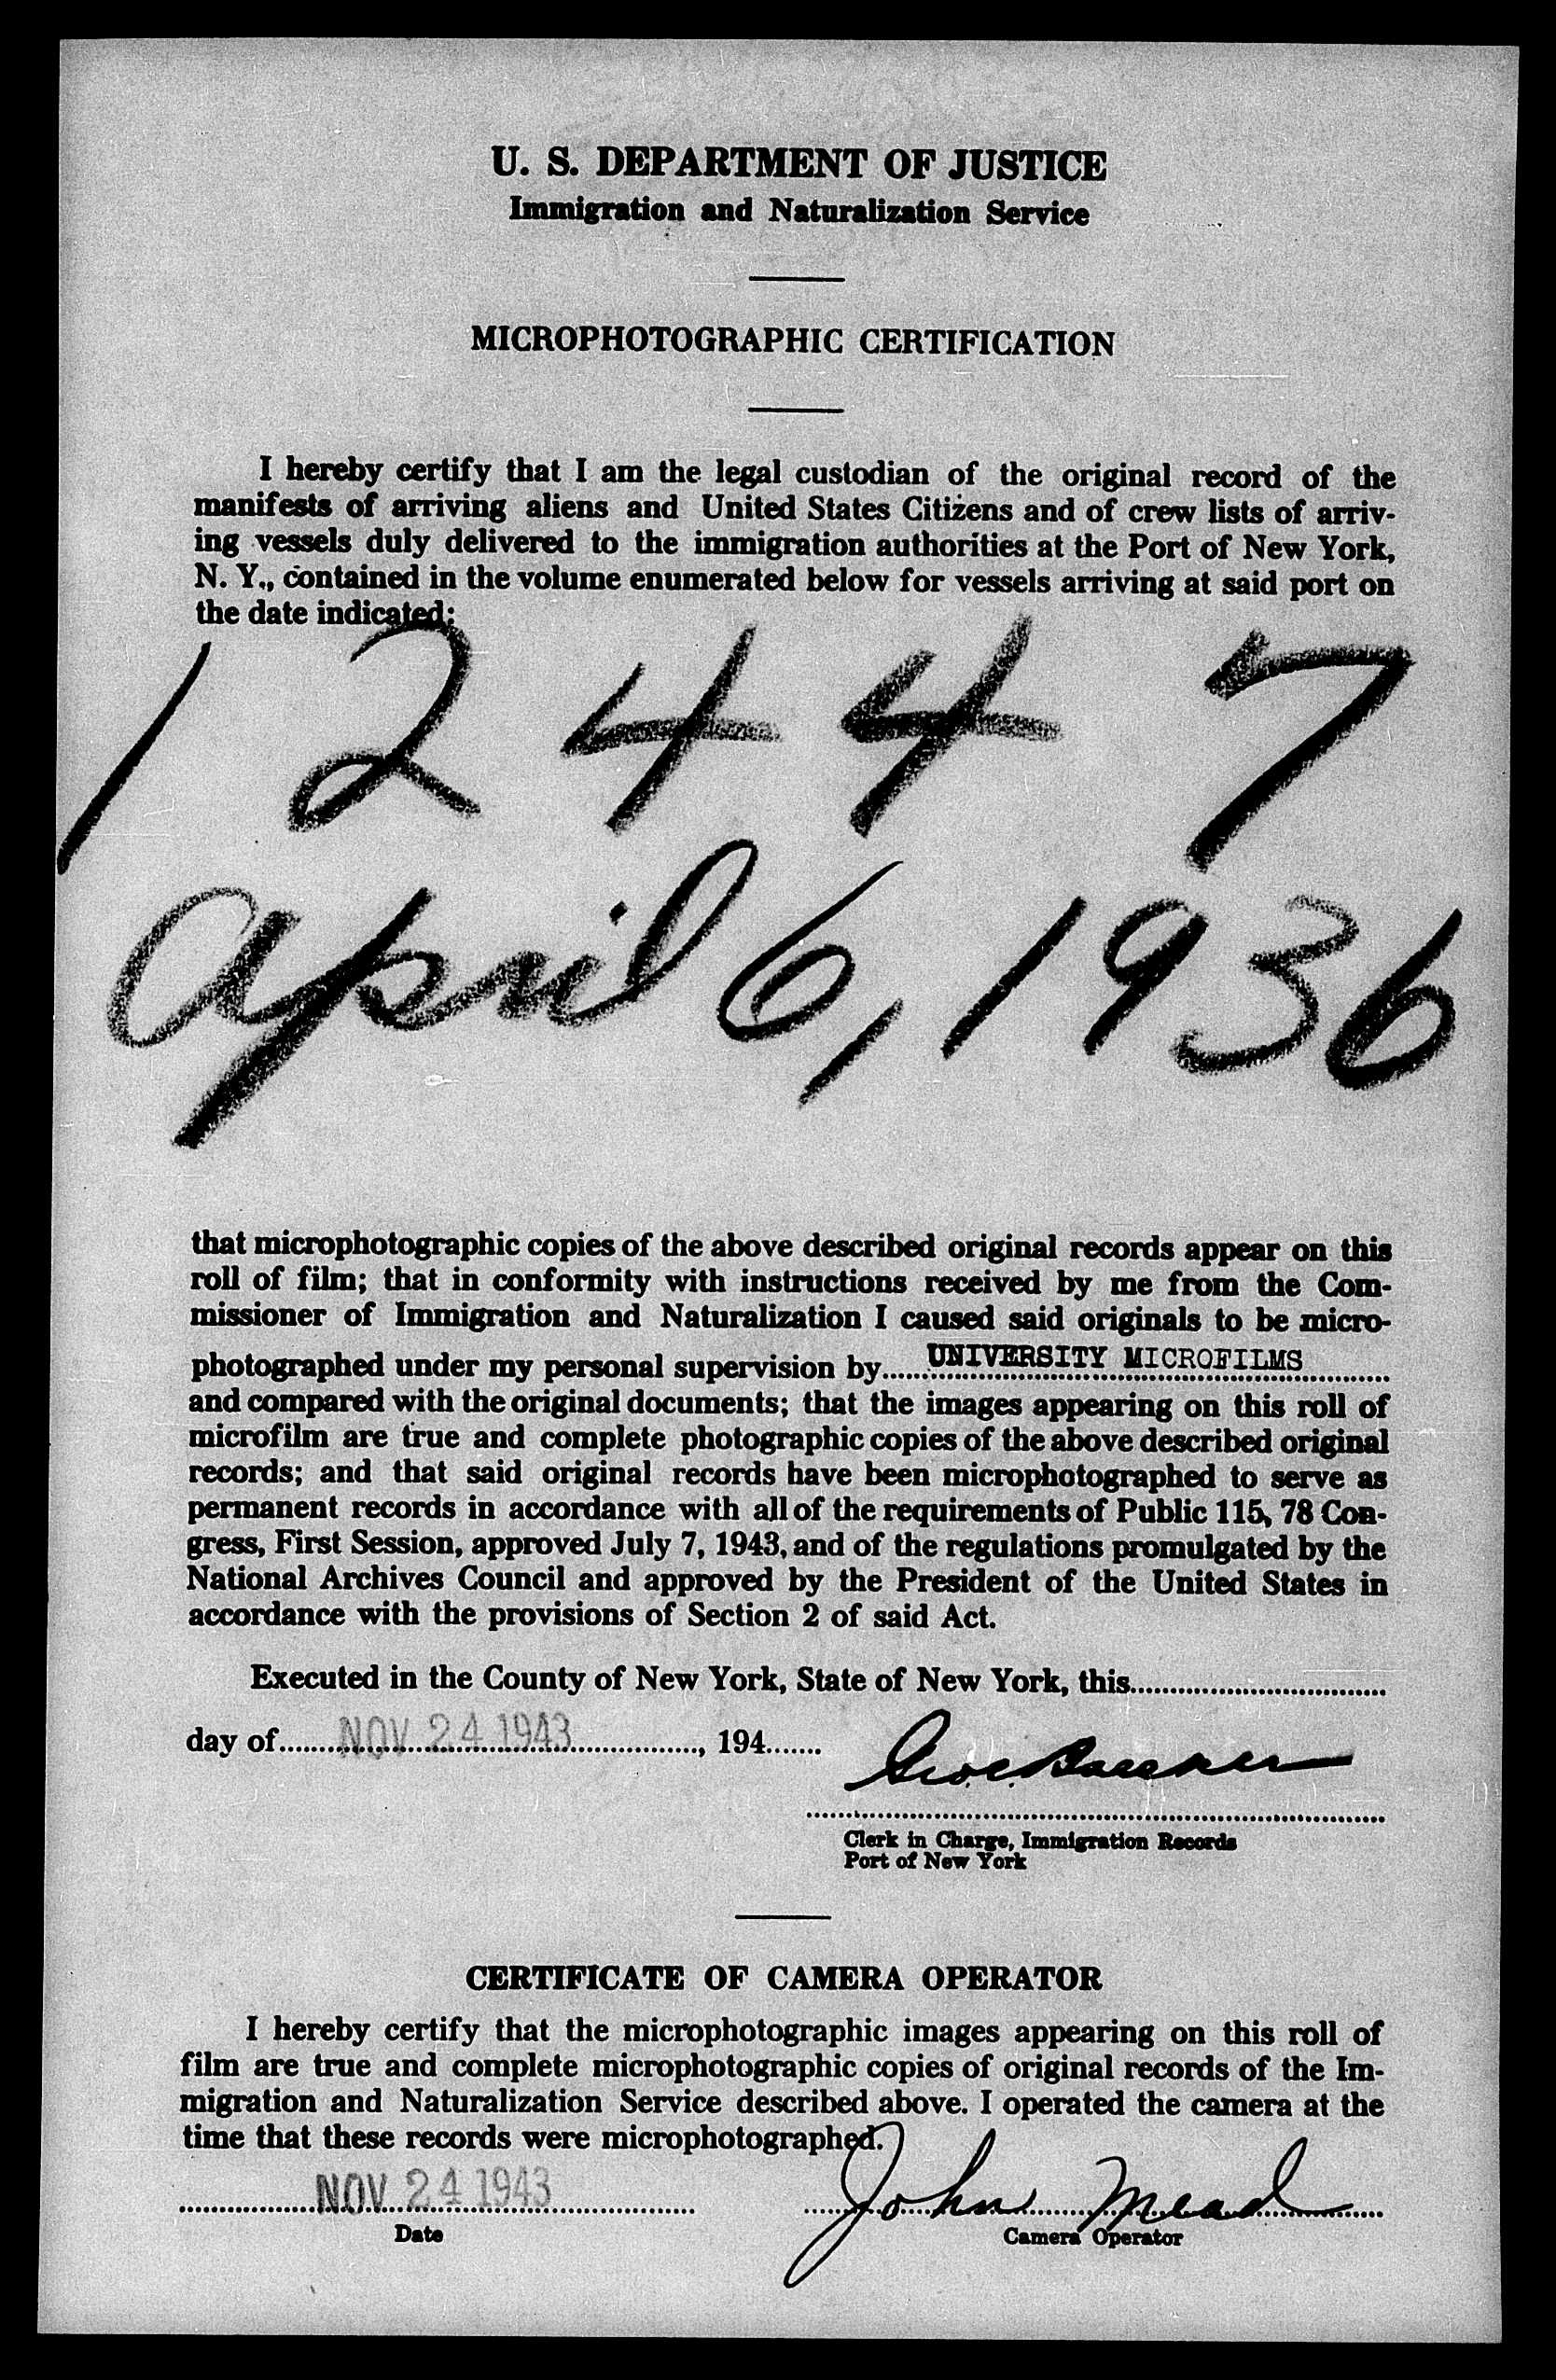 U. S. DEPARTMENT OF JUSTICE
Immigration and Naturalization Service
MICROPHOTOGRAPHIC CERTIFICATION
I hereby certify that I am the legal custodian of the original record of the
manifests of arriving aliens and United States Citizens and of crew lists of arriv-
ing vessels duly delivered to the immigration authorities at the Port of New York,
N. Y., contained in the volume enumerated below for vessels arriving at said port on
the date indicated:
12447
April 6, 1936
that microphotographic copies of the above described original records appear on this
roll of film; that in conformity with instructions received by me from the Com-
missioner of Immigration and Naturalization I caused said originals to be micro-
photographed under my personal supervision by......UNIVERSITY MICROFILMS......
and compared with the original documents; that the images appearing on this roll of
microfilm are true and complete photographic copies of the above described original
records; and that said original records have been microphotographed to serve as
permanent records in accordance with all of the requirements of Public 115, 78 Con-
gress, First Session, approved July 7, 1943, and of the regulations promulgated by the
National Archives Council and approved by the President of the United States in
accordance with the provisions of Section 2 of said Act.
Executed in the County of New York, State of New York, this......
day of......NOV 24 1943......, 194......
Clerk in Charge, Immigration Records
Port of New York
CERTIFICATE OF CAMERA OPERATOR
I hereby certify that the microphotographic images appearing on this roll of
film are true and complete microphotographic copies of original records of the Im-
migration and Naturalization Service described above. I operated the camera at the
time that these records were microphotographed.
NOV 24 1943 John Mead
Date Camera Operator